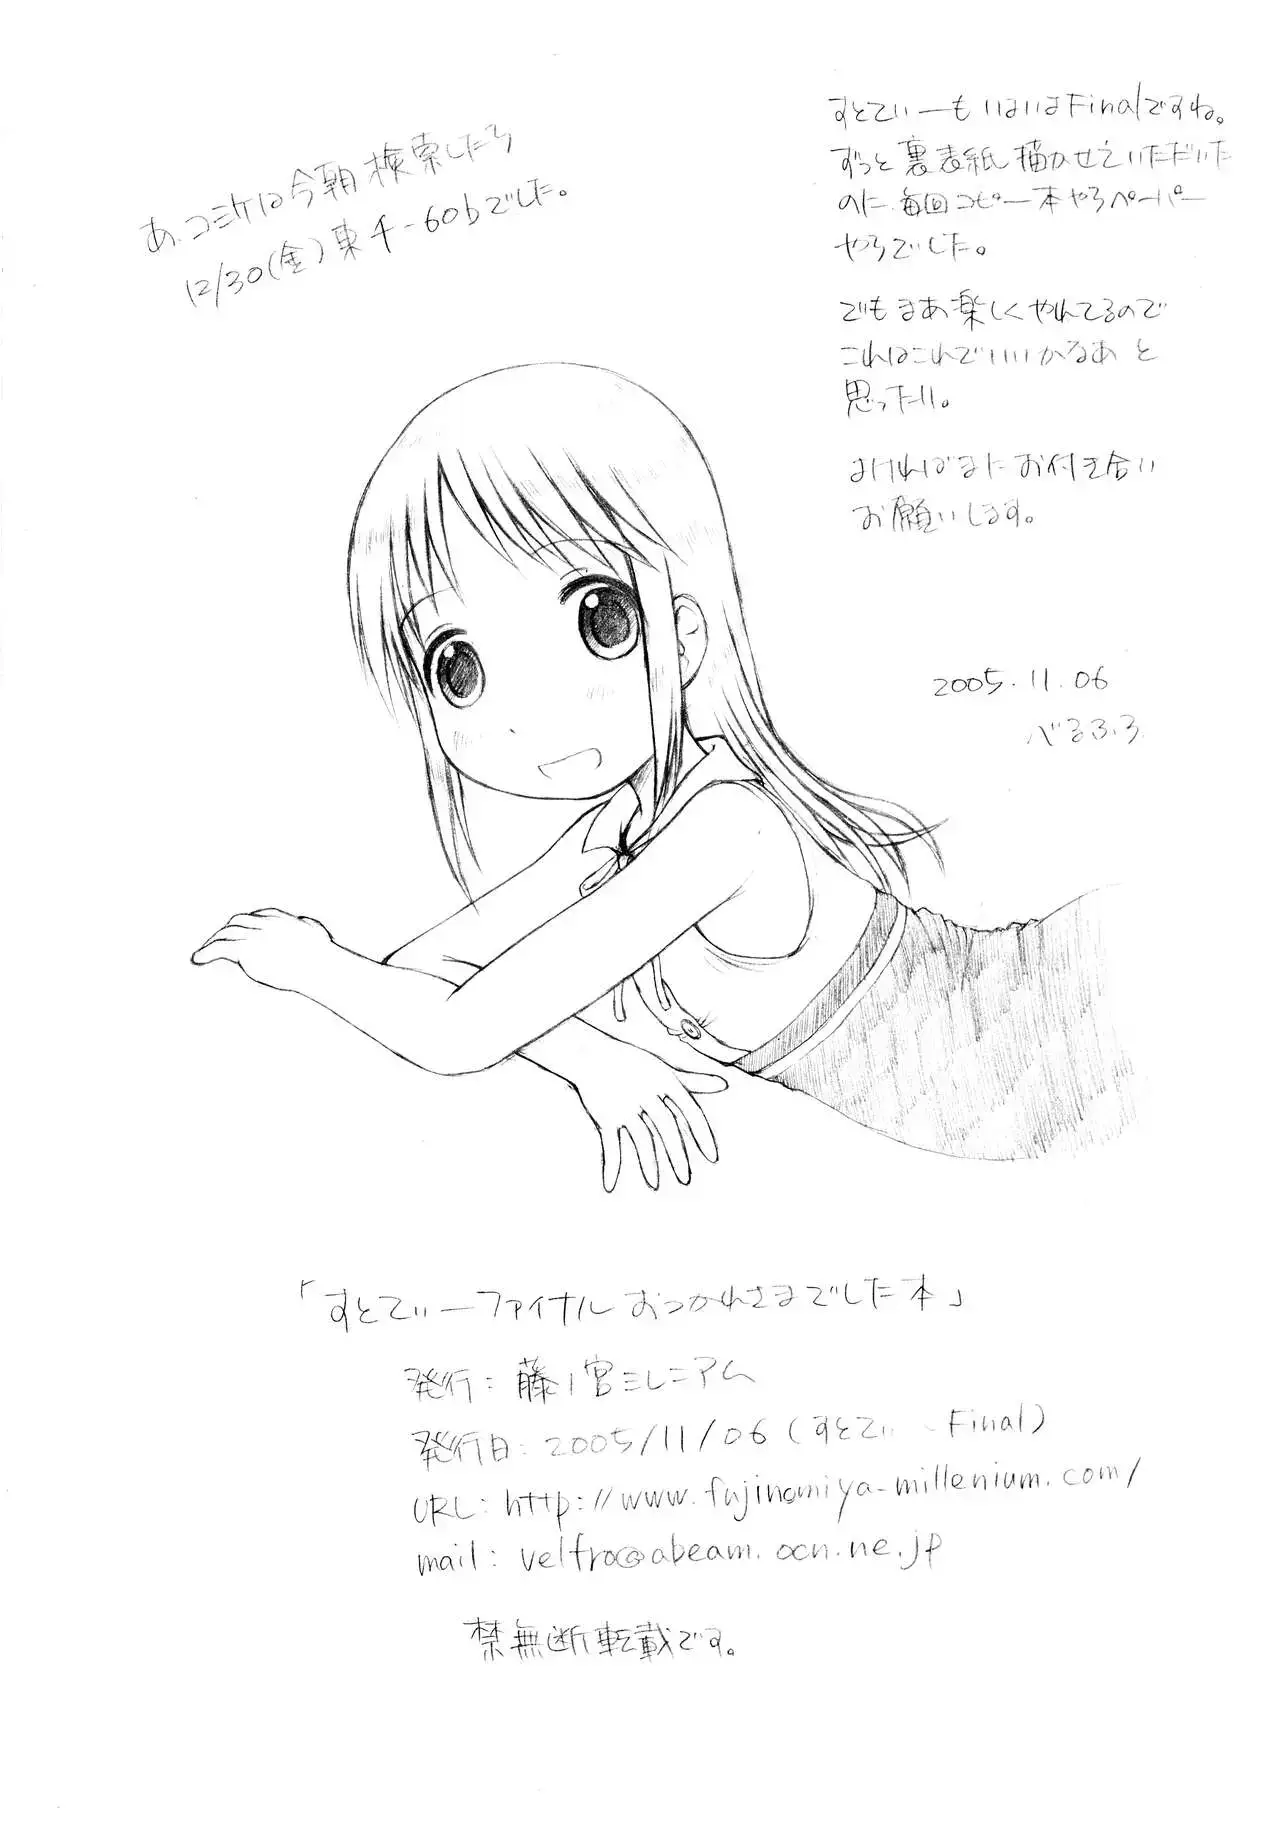 あ、コミケは今朝検索したら
12/30(金)東チ-60bでした。
すとてぃーもいよいよFinalですね。
ずっと裏表紙描かせていただいた
のに毎回コピー本やらペーパー
やらでした。
でもまあ楽しくやれてるので
これはこれでいいかなあと
思ったり。
よければまたお付き合い
お願いします。
2005.11.06
べるふろ
「すとてぃーファイナルおつかれさまでした本」
発行：藤ノ宮ミレニアム
発行日：2005/11/06(すとてぃーFinal)
URL：http://www.fujinomiya-millenium.com/
mail：velfro@abeam.ocn.ne.jp
禁無断転載です。